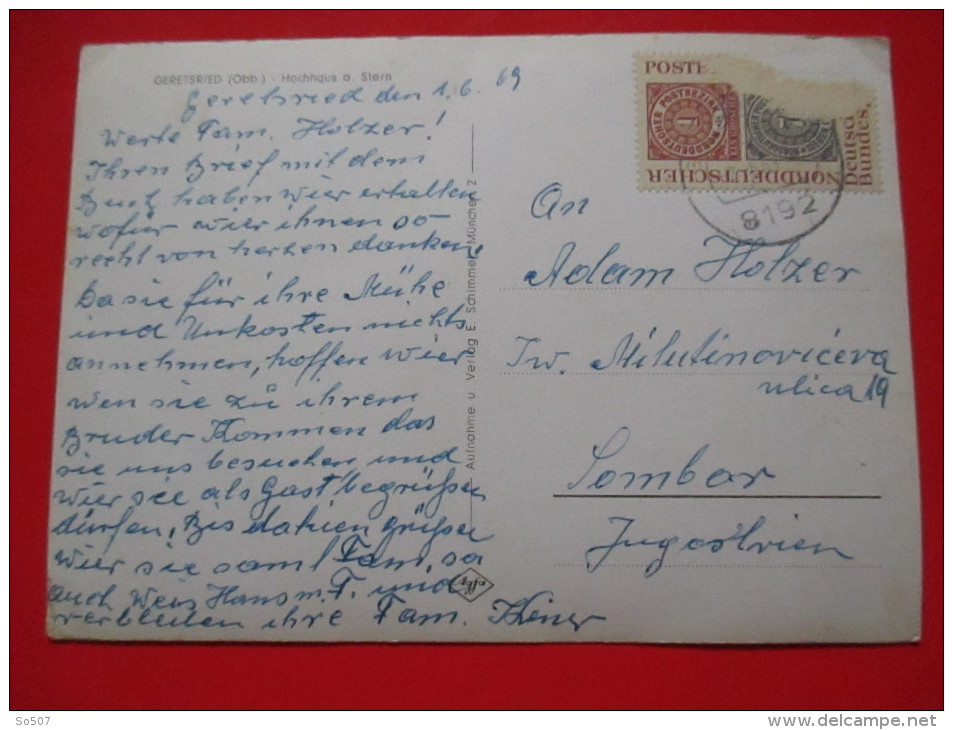 GERETSRIED (Obb.) - Hochhaus a. Stern
Geretsried den 1.6.69
Werte Fam. Holzer!
Ihren Brief mit dem
Buch haben wier erhalten
wofür wier ihnen so-
recht von herzen danken,
Da sie für ihre Mühe
und Unkosten nichts
annehmen, hoffen wier
wen sie zu ihrem
Bruder Kommen das
sie uns besuchen und
wier sie als Gast begrüßen
dürfen. Bis dahien grüßen
wier sie samt Fam. so
auch Weis Hans m. F. und
verbleiben ihre Fam.
Aufnahme u. Verlag E. Schimmer, München 2
POSTE
NORDDEUTSCHER POSTBEZIRK
NORDDEUTSCHER
Deutsc
Bundes.
8192
An
Adam Holzer
Iw. Milutinovićeva
ulica 19
Sombor
Jugoslvien
So507
delcampe.net